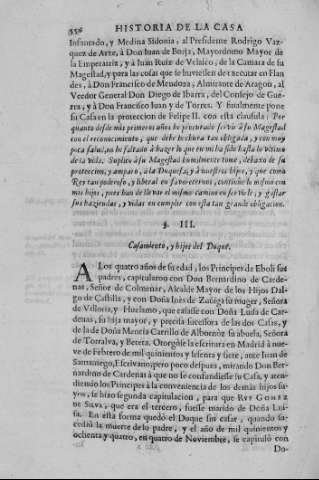 556 HISTORIA DE LA CASA
Infantado, y Medina Sidonia, al Presidente Rodrigo Vaz-
quez de Arze, à Don Iuan de Borja, Mayordomo Mayor de
la Emperatriz, y à Iuan Ruiz de Velasco, de la Camara de su
Magestad, y para las cosas que se huviessen de executar en Flan-
des, à Don Francisco de Mendoza, Almirante de Aragon, al
Veedor General Don Diego de Ibarra, del Consejo de Gue-
rra, y à Don Francisco Iuan y de Torres. Y finalmente pone
su Casa en la proteccion de Felipe II. con esta clausula: Por
quanto desde mis primeros años he procurado servir à su Magestad
con el reconocimiento, que debe hechura tan obligada, y con muy
poca salud, no he faltado à hazer lo que en mi ha sido hasta lo vltimo
de la vida, Suplico à su Magestad humilmente tome, debaxo de su
proteccion, y amparo, à la Duquesa, y à nuestros hijos, y que como
Rey tan poderoso, y liberal en favorecernos, continùe lo mismo con
mis hijos, pues han de llevar el mismo camino en servirle, y gastar
sus haziendas, y vidas en cumplir con esta tan grande obligacion.
§. III.
Casamiento, y hijos del Duque.
A Los quatro años de su edad, los Principes de Eboli sus
padres, capitularon con Don Bernardino de Carde-
nas, Señor de Colmenar, Alcalde Mayor de los Hijos Dal-
go de Castilla, y con Doña Inès de Zuñiga su muger, Señora
de Villoria, y Huelamo, que casasse con Doña Luisa de Car-
denas, su hija mayor, y precisa sucessora de las dos Casas, y
de la de Doña Mencia Carrillo de Albornòz su abuela, Señora
de Torralva, y Beteta. Otorgòse la escritura en Madrid à nue-
ve de Febrero de mil quinientos y sesenta y siete, ante Iuan de
Samaniego, Escrivano; pero poco despues, mirando Don Ber-
nardino de Cardenas à que no se confundiesse su Casa, y aten-
diendo los Principes à la conveniencia de los demàs hijos sa-
yos, se hizo segunda capitulacion, para que RVY GOMEZ
DE SILVA, que era el tercero, fuesse marido de Doña Lui-
sa. En esta forma quedò el Duque sin casar, quando su-
cediò la muerte de lo padre, y el año de mil quinientos y
ochenta y quatro, en quatro de Noviembre, se capitulò con
Do-